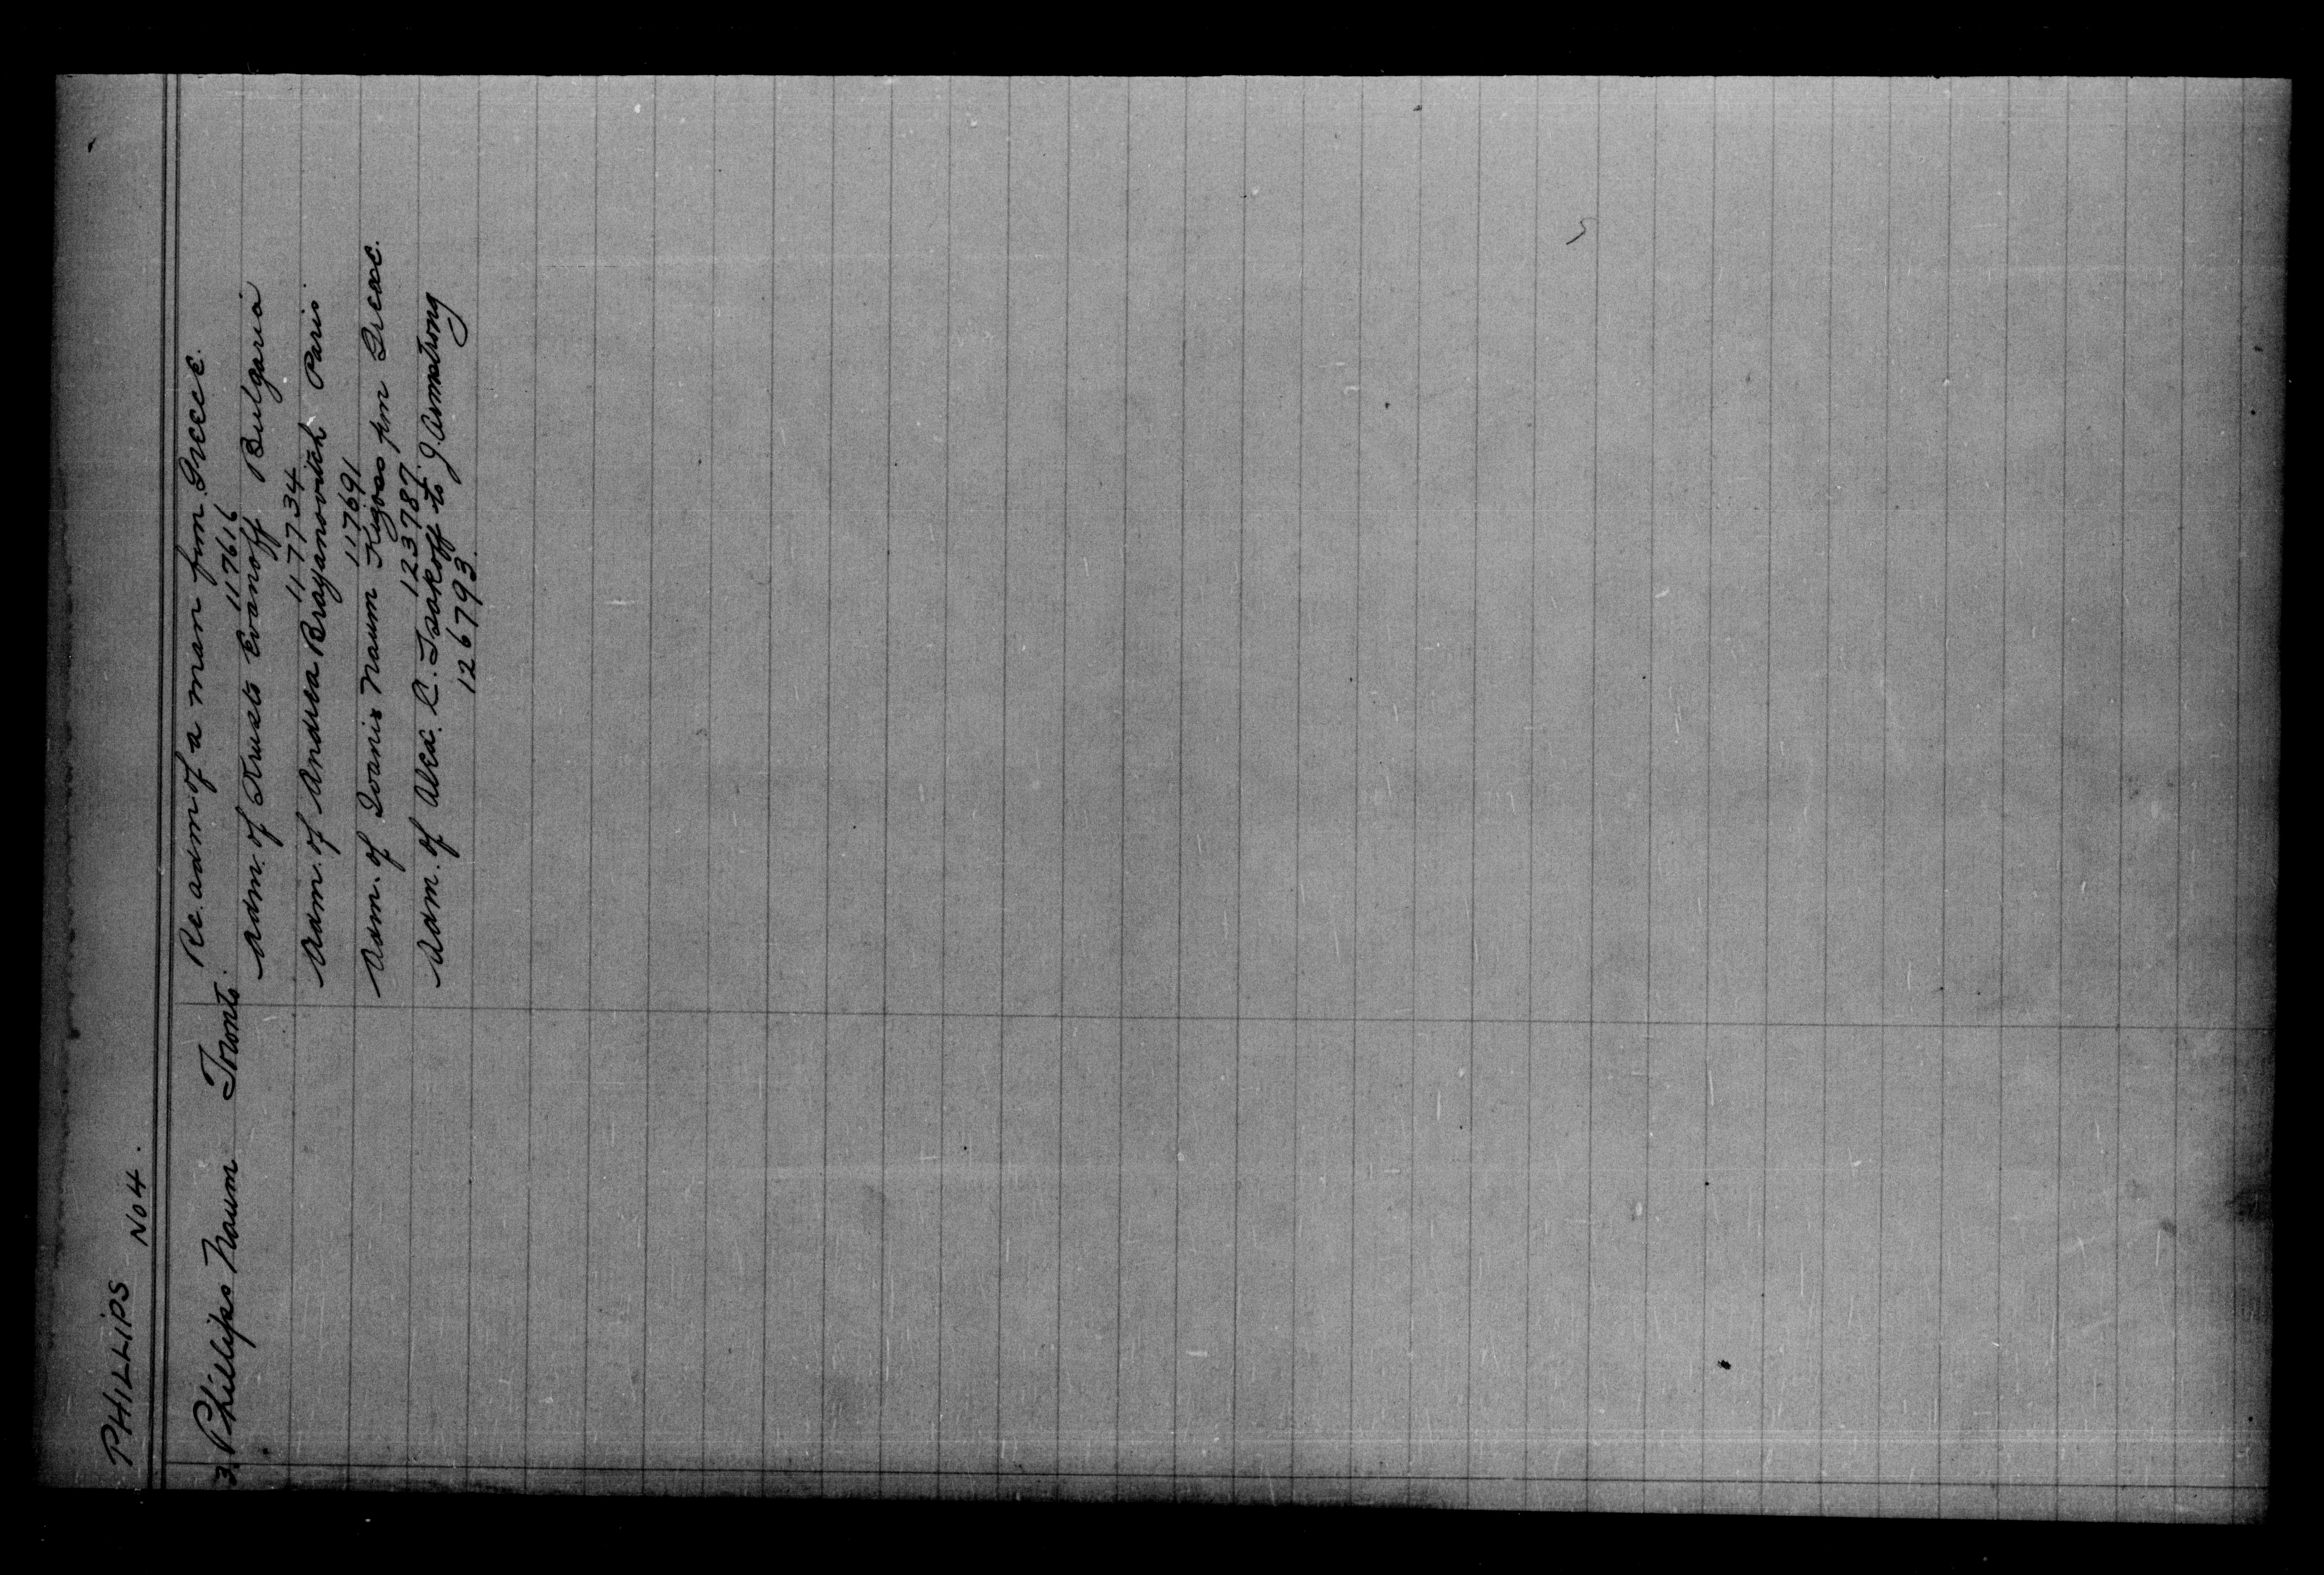 PHILLIPS
No 4.
3. Phillips Naum Toronto. Re. adm. of a man from Greece.
117616
Adm. of Krusto Evanoff Bulgaria
117734
Adm. of Andrea Brayanovitch Paris
117691
Adm. of Ioanis Naum from Greece.
123787
Adm. of Alex. C. Tsakoff to J. Armstrong
126793